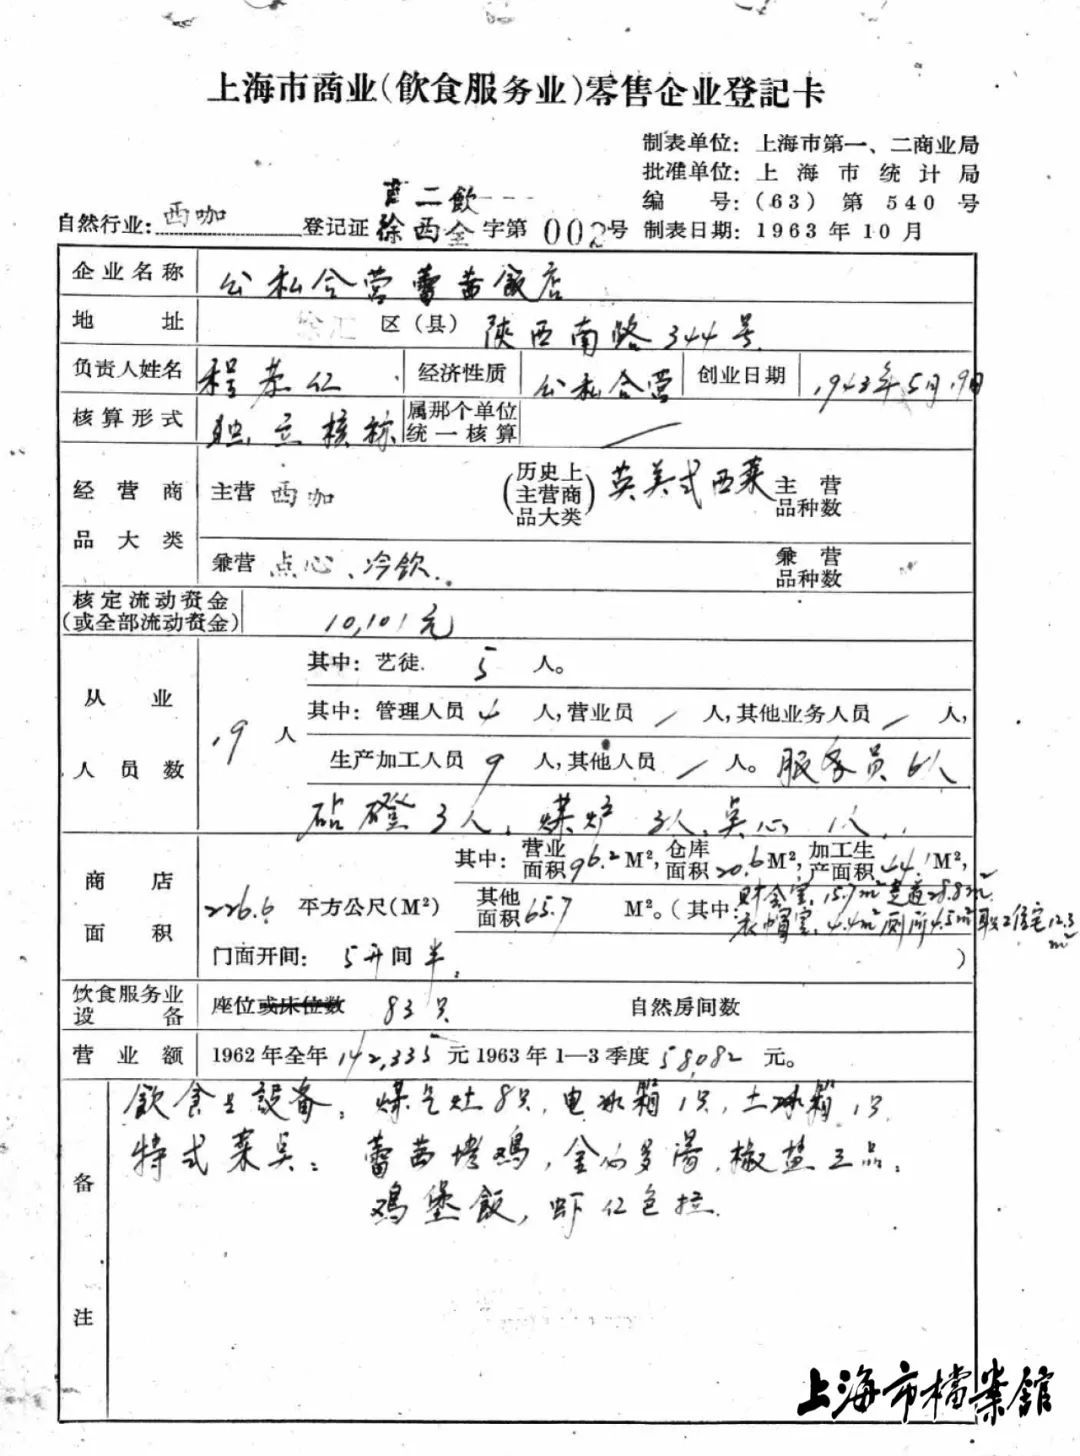 上海市商业(飲食服务业)零售企业登記卡
制表单位：上海市第一、二商业局
批准单位：上海市统计局
编号：(63)第540号
二飲
自然行业：西咖 登记证 徐西全 字第002号 制表日期：1963年10月
企业名称 公私合营蕾茜飯店
地址 徐汇 区(县) 陝西南路344号
负责人姓名 程恭仁 经济性质 公私合营 创业日期 1943年5月19日
核算形式 独立核祘 属那个单位统一核算
经营商品大类 主营 西咖 (历史上主营商品大类) 英美式西菜 主营品种数
兼营 点心、冷飲. 兼营品种数
核定流动资金(或全部流动资金) 10,101元
从业人员数 19人 其中：艺徒 5 人。
其中：管理人员 4 人，营业员 / 人，其他业务人员 / 人，
生产加工人员 9 人，其他人员 / 人。服务员6人
砧磴3人，煤炉3人，点心1人
商店面积 226.6 平方公尺(M²) 其中：营业面积96.2M²，仓库面积20.6M²，加工生产面积44.1M²，
其他面积65.7 M²。(其中：財会室，15.7m²走道28.8m²
衣帽室，4.4m²厕所4.5m²职工住宅12.3m²
门面开间：5开间半， )
饮食服务业设备 座位或床位数 83只 自然房间数
营业额 1962年全年142,335元1963年1—3季度58,082元。
备注 飲食主設备：煤气灶8只，电冰箱1只，土冰箱1只
特式菜点：蕾茜烤鸡，金必多湯，椒盐三品，
鸡堡飯，虾仁色拉.
上海市檔案館